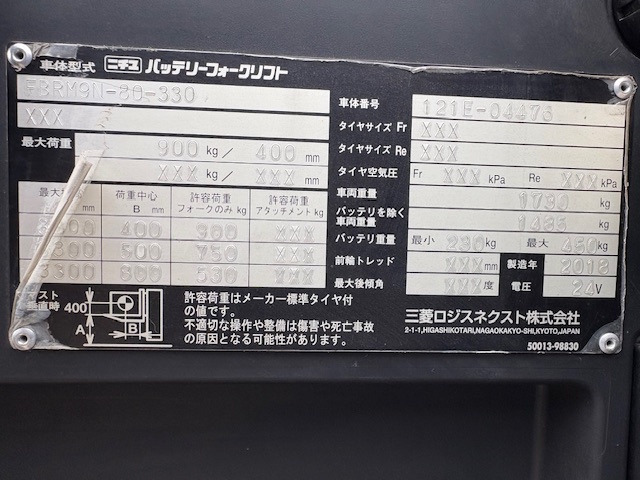 車体型式 ニチユ バッテリーフォークリフト
FBRM9N-80-330
XXX
最大荷重 900 kg/ 400 mm
XXX kg/ XXX mm
荷重中心 B mm 許容荷重 フォークのみ kg 許容荷重 アタッチメント kg
400 900 XXX
500 750 XXX
3300 600 530 XXX
垂直時 400
A
B
許容荷重はメーカー標準タイヤ付
の値です。
不適切な操作や整備は傷害や死亡事故
の原因となる可能性があります。
車体番号 121E-04476
タイヤサイズ Fr XXX
タイヤサイズ Re XXX
タイヤ空気圧 Fr XXX kPa Re XXX kPa
車両重量 1730 kg
バッテリを除く 車両重量 1485 kg
バッテリ重量 最小 230 kg 最大 450 kg
前輪トレッド XXX mm 製造年 2018
最大後傾角 XXX 度 電圧 24 V
三菱ロジスネクスト株式会社
2-1-1,HIGASHIKOTARI,NAGAOKAKYO-SHI,KYOTO,JAPAN
50013-98830